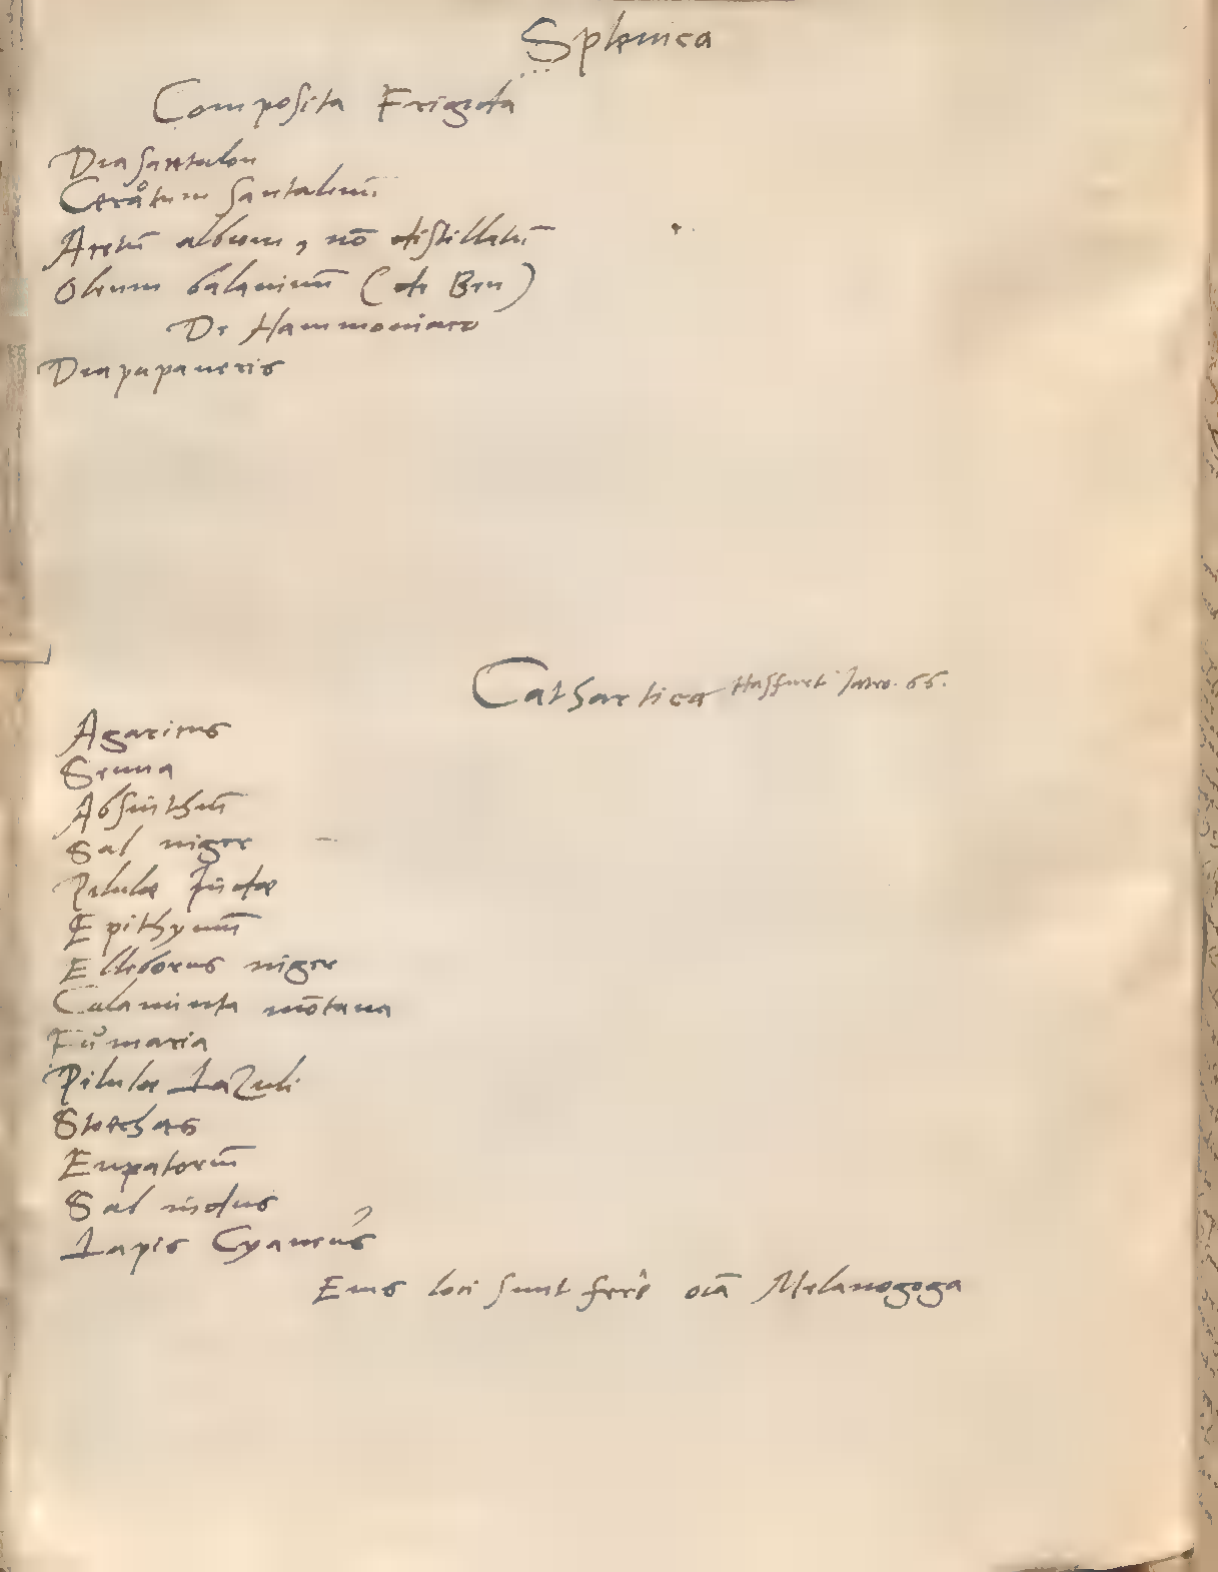 Splenica
Composita Frigida
Diasantalon
Ceratum santalinū
Acetū album, nō distillatū
Oleum balaninū (de Ben)
De Hammoniaco
Diapapaueris
Cathartica Hasfurt Iatro. 66.
Agaricus
Senna
Absinthiū
Sal niger
Pilulæ Indæ
Epithymū
Elleborus niger
Calaminta mōtana
Fumaria
Pilulæ Lazuli
Stoechas
Eupatoriū
Sal indus
Lapis Cyaneus
Eius loci sunt ferè oīa Melanogoga